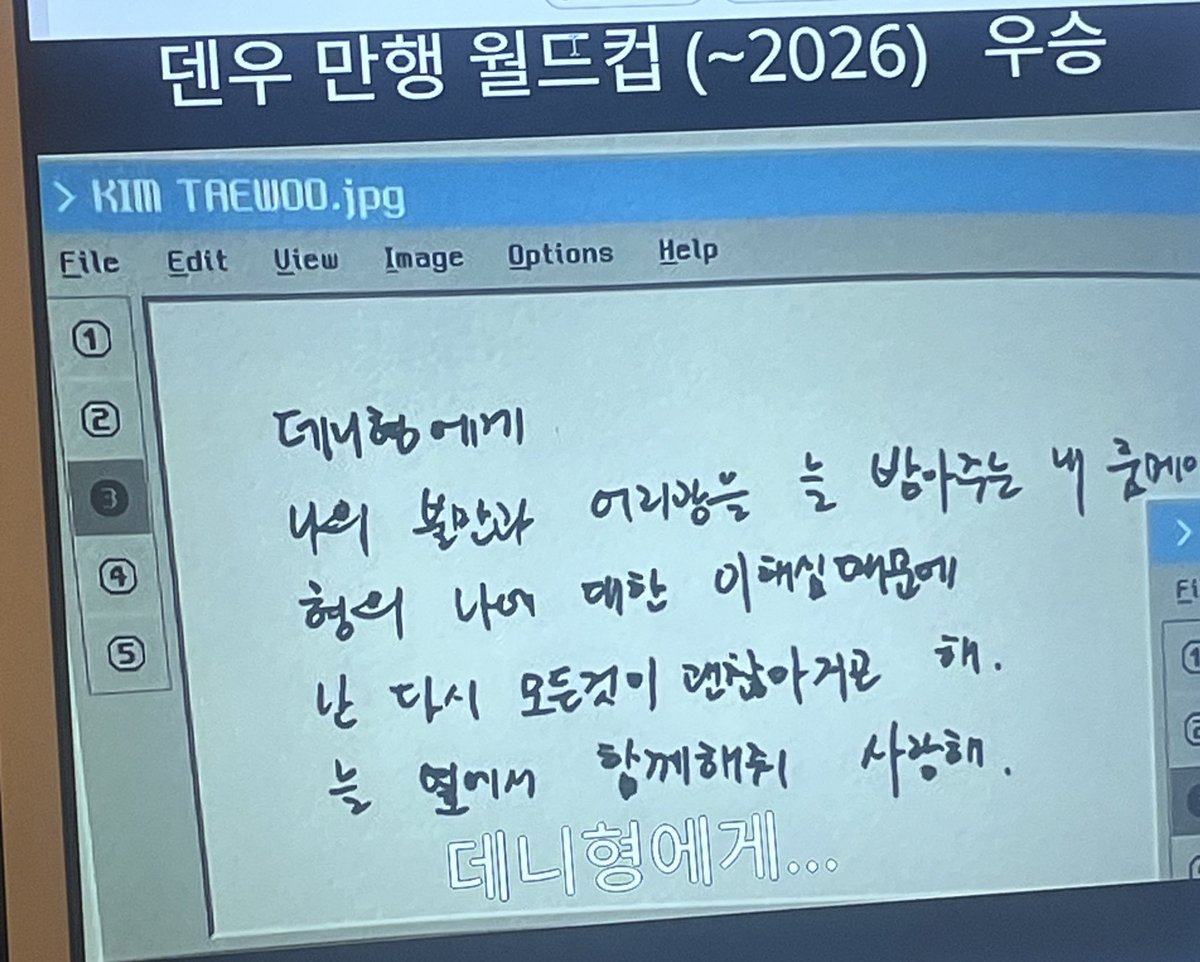 덴우 만행 월드컵 (~2026) 우승
> KIM TAEWOO.jpg
File Edit View Image Options Help
1
2
3
4
5
데니형에게
나의 불만과 어리광을 늘 받아주는 내 룸메이
형의 나에 대한 이해심때문에
난 다시 모든것이 괜찮아지곤 해.
늘 옆에서 함께해줘 사랑해.
데니형에게...
>
Fi
1